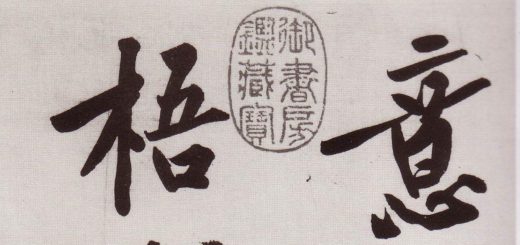 意
御書房
鑑藏寶
梧